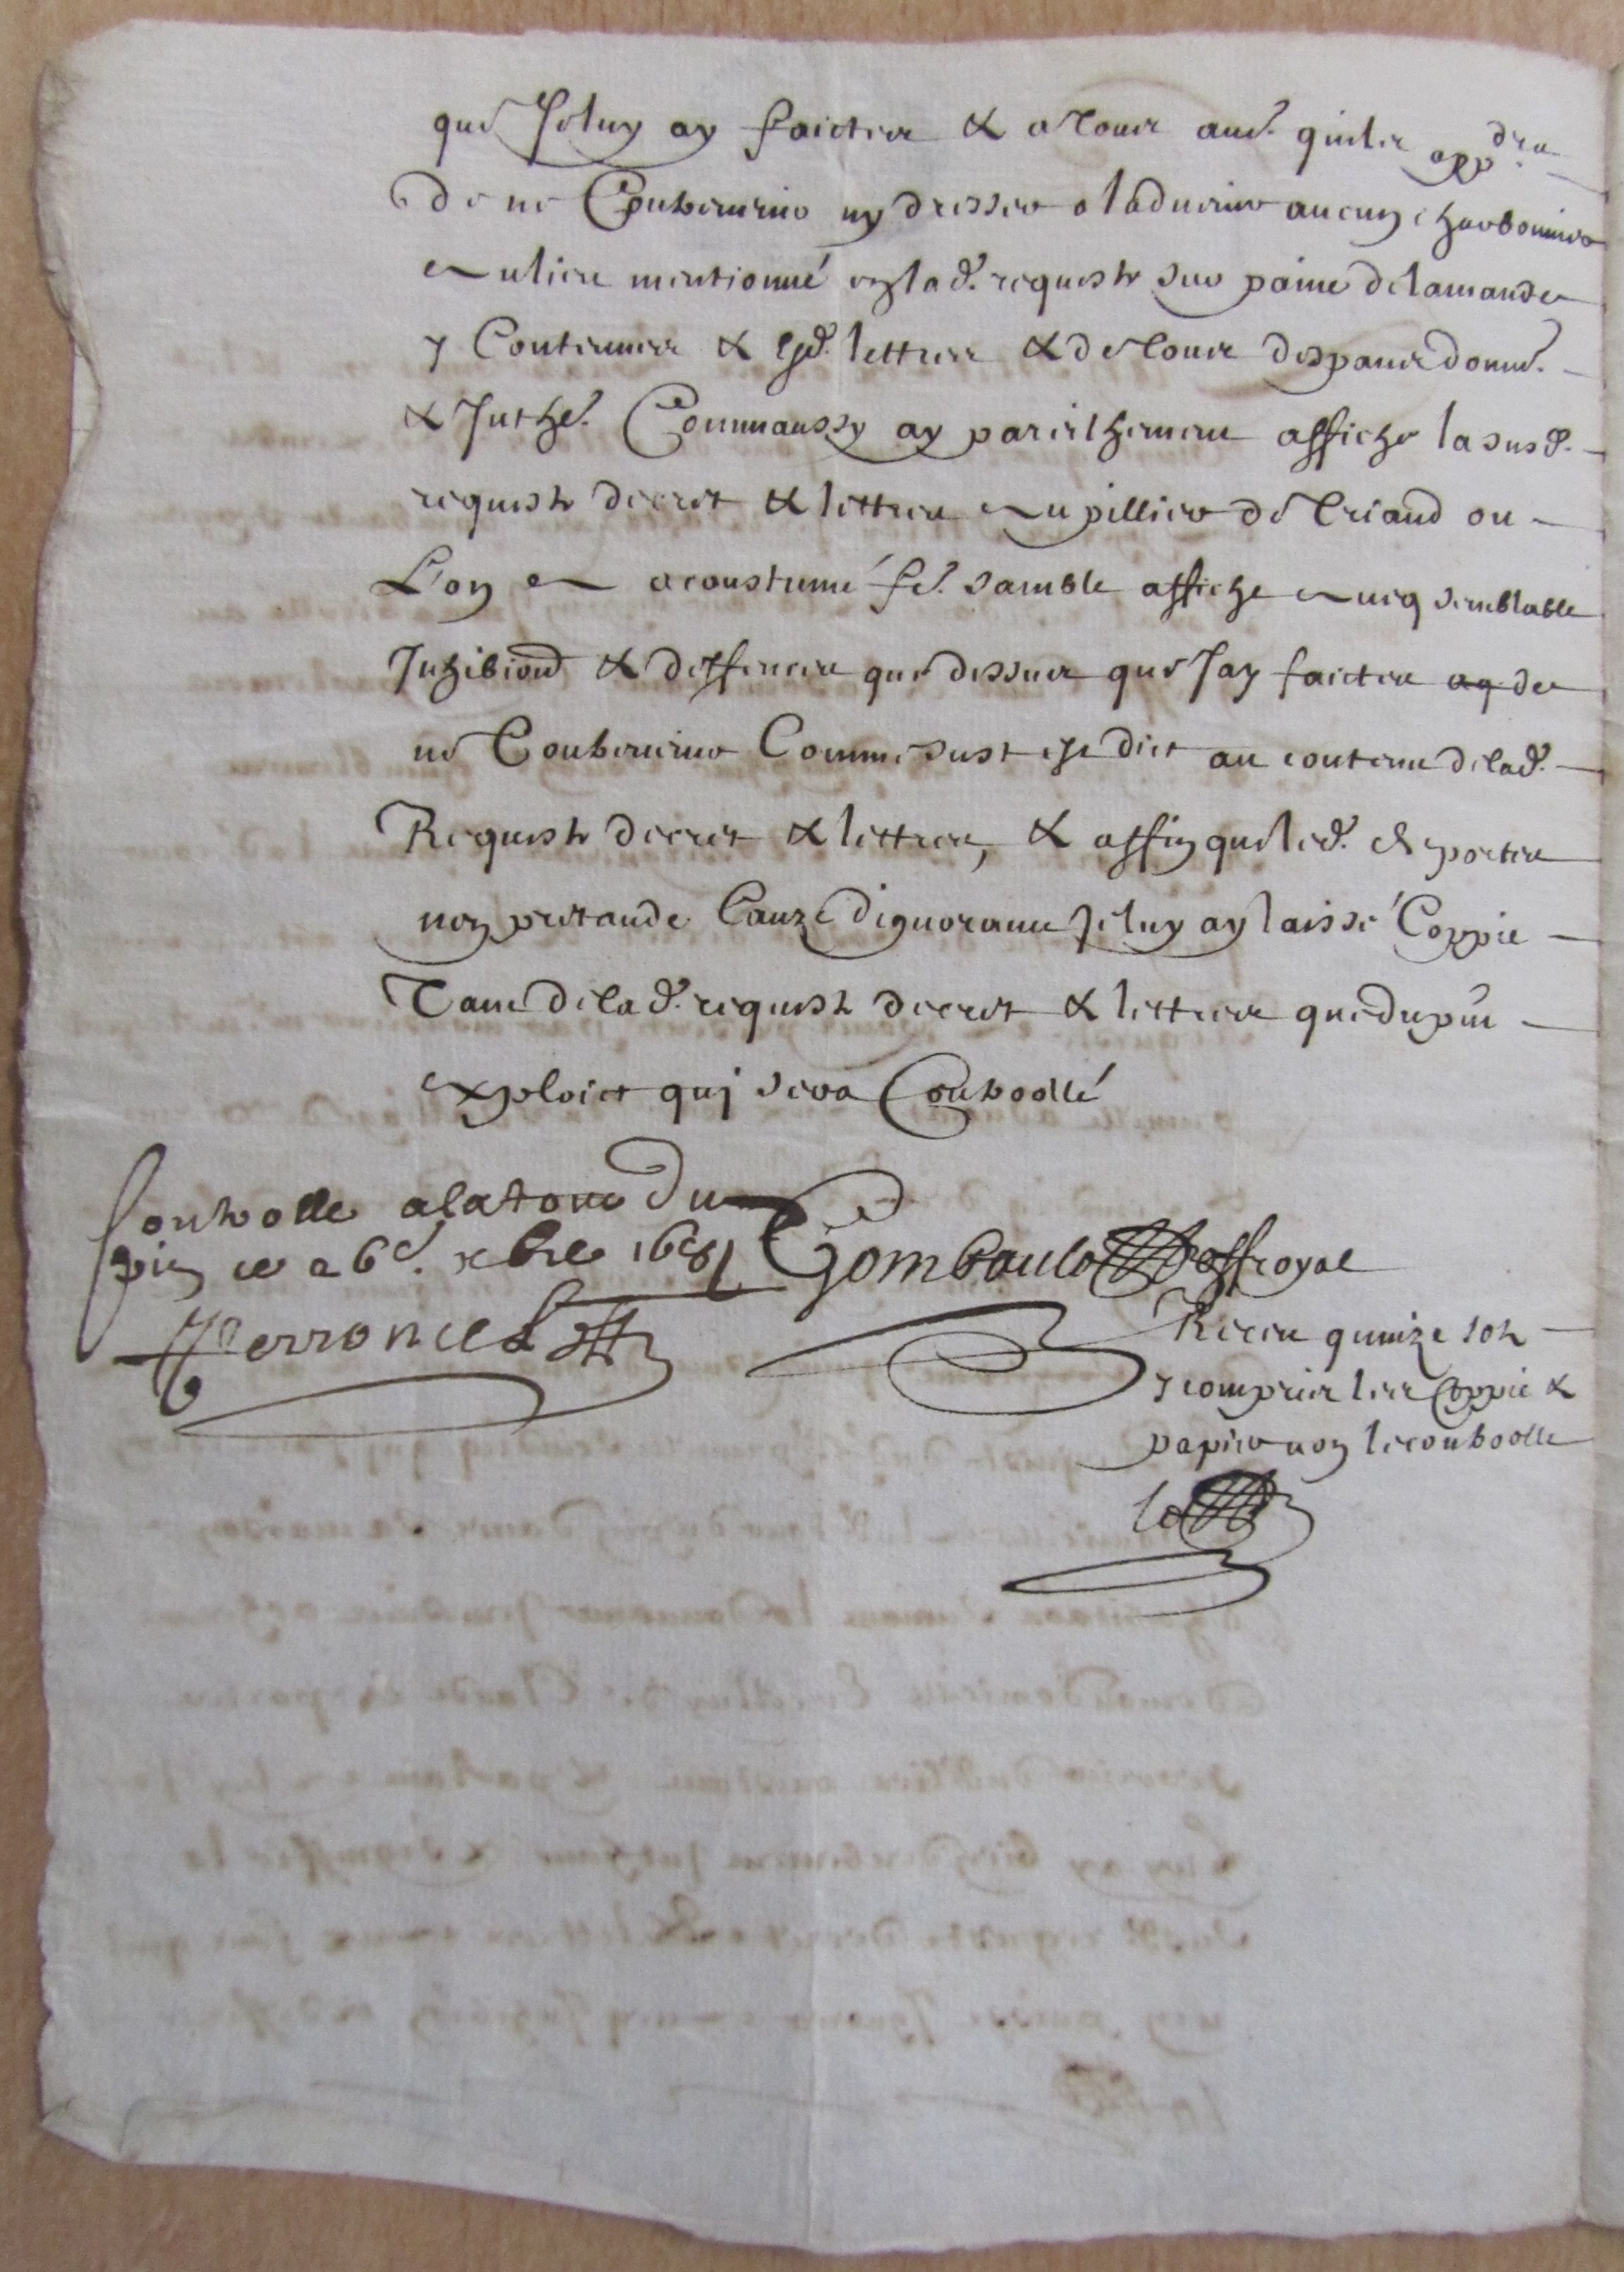 que Je luy ay faictes & a tous autr. qu'il appdra
de ne Contrevenir ny dresser a ladvenir aucun charbonnier
au lieu mentionné en lad. requeste sur paine de lamande
y Contenues & esd. lettres & de tous despans dom.
& Inthe. Comm aussy ay pareilhemeu affiche la susd.
requeste decret & lettres au pillier de Criaud ou
L'on a acoustumé fe. samble affiche avecq semblable
Inhibiond & deffences que dessus que Jay faictes de
ne Contrevenir Comme sust est dict au contenu de lad.
Requeste decret & lettres, & affin que led.
non pretande Cauze dignorance Je luy ay laissé Coppie
Tant de lad. requeste decret & lettres que du pnt
exploict qui sera Controollé
Controlle a la tour du
pin ce 26e. xbre 1681
Perroncel
Gombault sr royal
Receu quinze sols
y compris les Coppie &
papier non le controolle